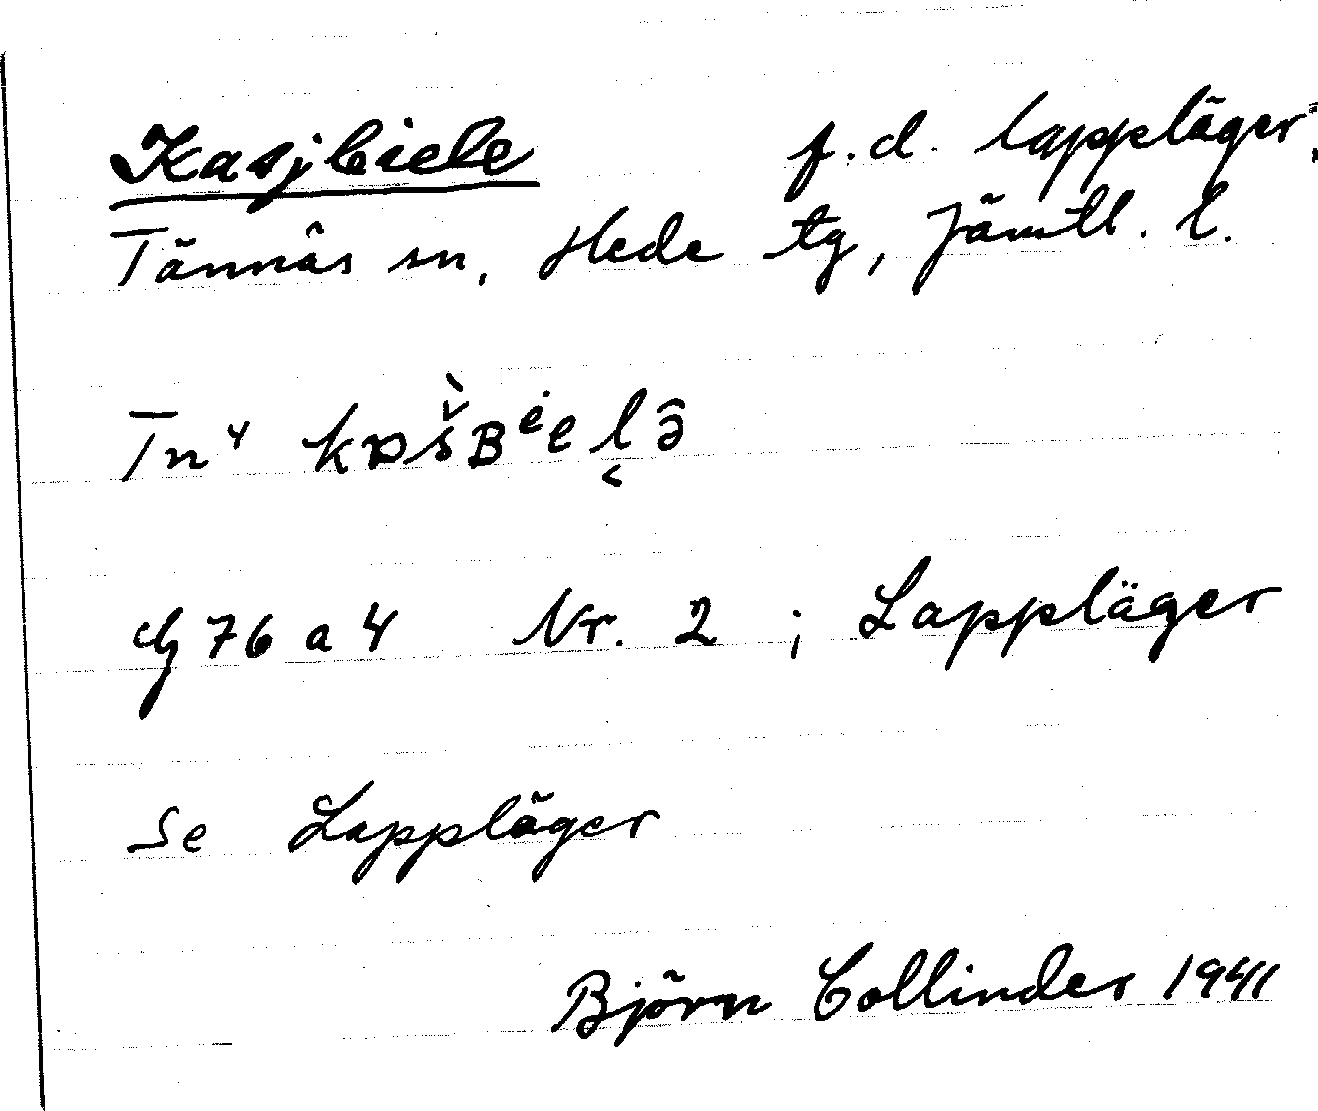 Kasjbiele f.d. lappläger,
Tännäs sn, Hede tg, Jämtl. l.
Tn⁴
G 76 a 4 Nr. 2 ; Lappläger
Se Lappläger
Björn Collinder 1941